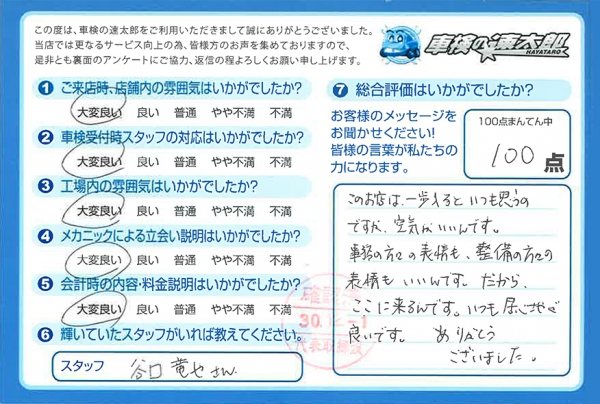 この度は、車検の速太郎をご利用いただきまして誠にありがとうございました。
当店では更なるサービス向上の為、皆様方のお声を集めておりますので、
是非とも裏面のアンケートにご協力、返信の程よろしくお願い申し上げます。
車検の速太郎
HAYATARO
1 ご来店時、店舗内の雰囲気はいかがでしたか?
大変良い 良い 普通 やや不満 不満
2 車検受付時スタッフの対応はいかがでしたか?
大変良い 良い 普通 やや不満 不満
3 工場内の雰囲気はいかがでしたか?
大変良い 良い 普通 やや不満 不満
4 メカニックによる立会い説明はいかがでしたか?
大変良い 良い 普通 やや不満 不満
5 会計時の内容・料金説明はいかがでしたか?
大変良い 良い 普通 やや不満 不満
6 輝いていたスタッフがいれば教えてください。
スタッフ 谷口 竜也さん
確認済
30.12.-1
代表取締役
7 総合評価はいかがでしたか?
お客様のメッセージを
お聞かせください!
皆様の言葉が私たちの
力になります。
100点まんてん中
100点
このお店は、一歩入るといつも思うの
ですが、空気がいいんです。
事務の方々の表情も、整備の方々の
表情もいいんです。だから、
ここに来るんです。いつも居心地が
良いです。 ありがとう
ございました。